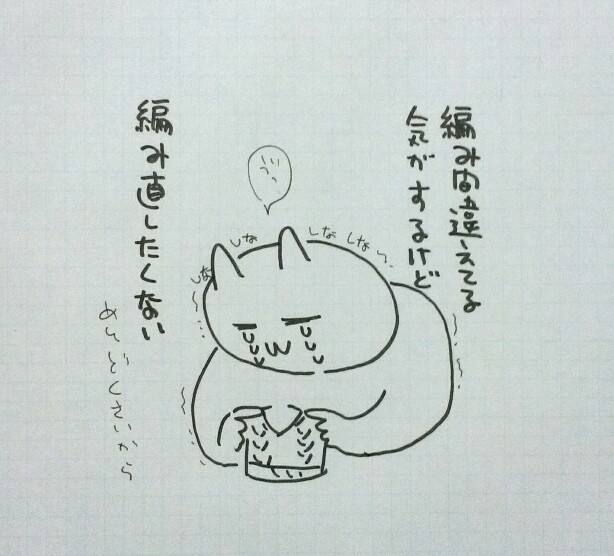 編み間違えてる
気がするけど
しな
しな
しな
しな〜
編み直したくない
めんどくさいから